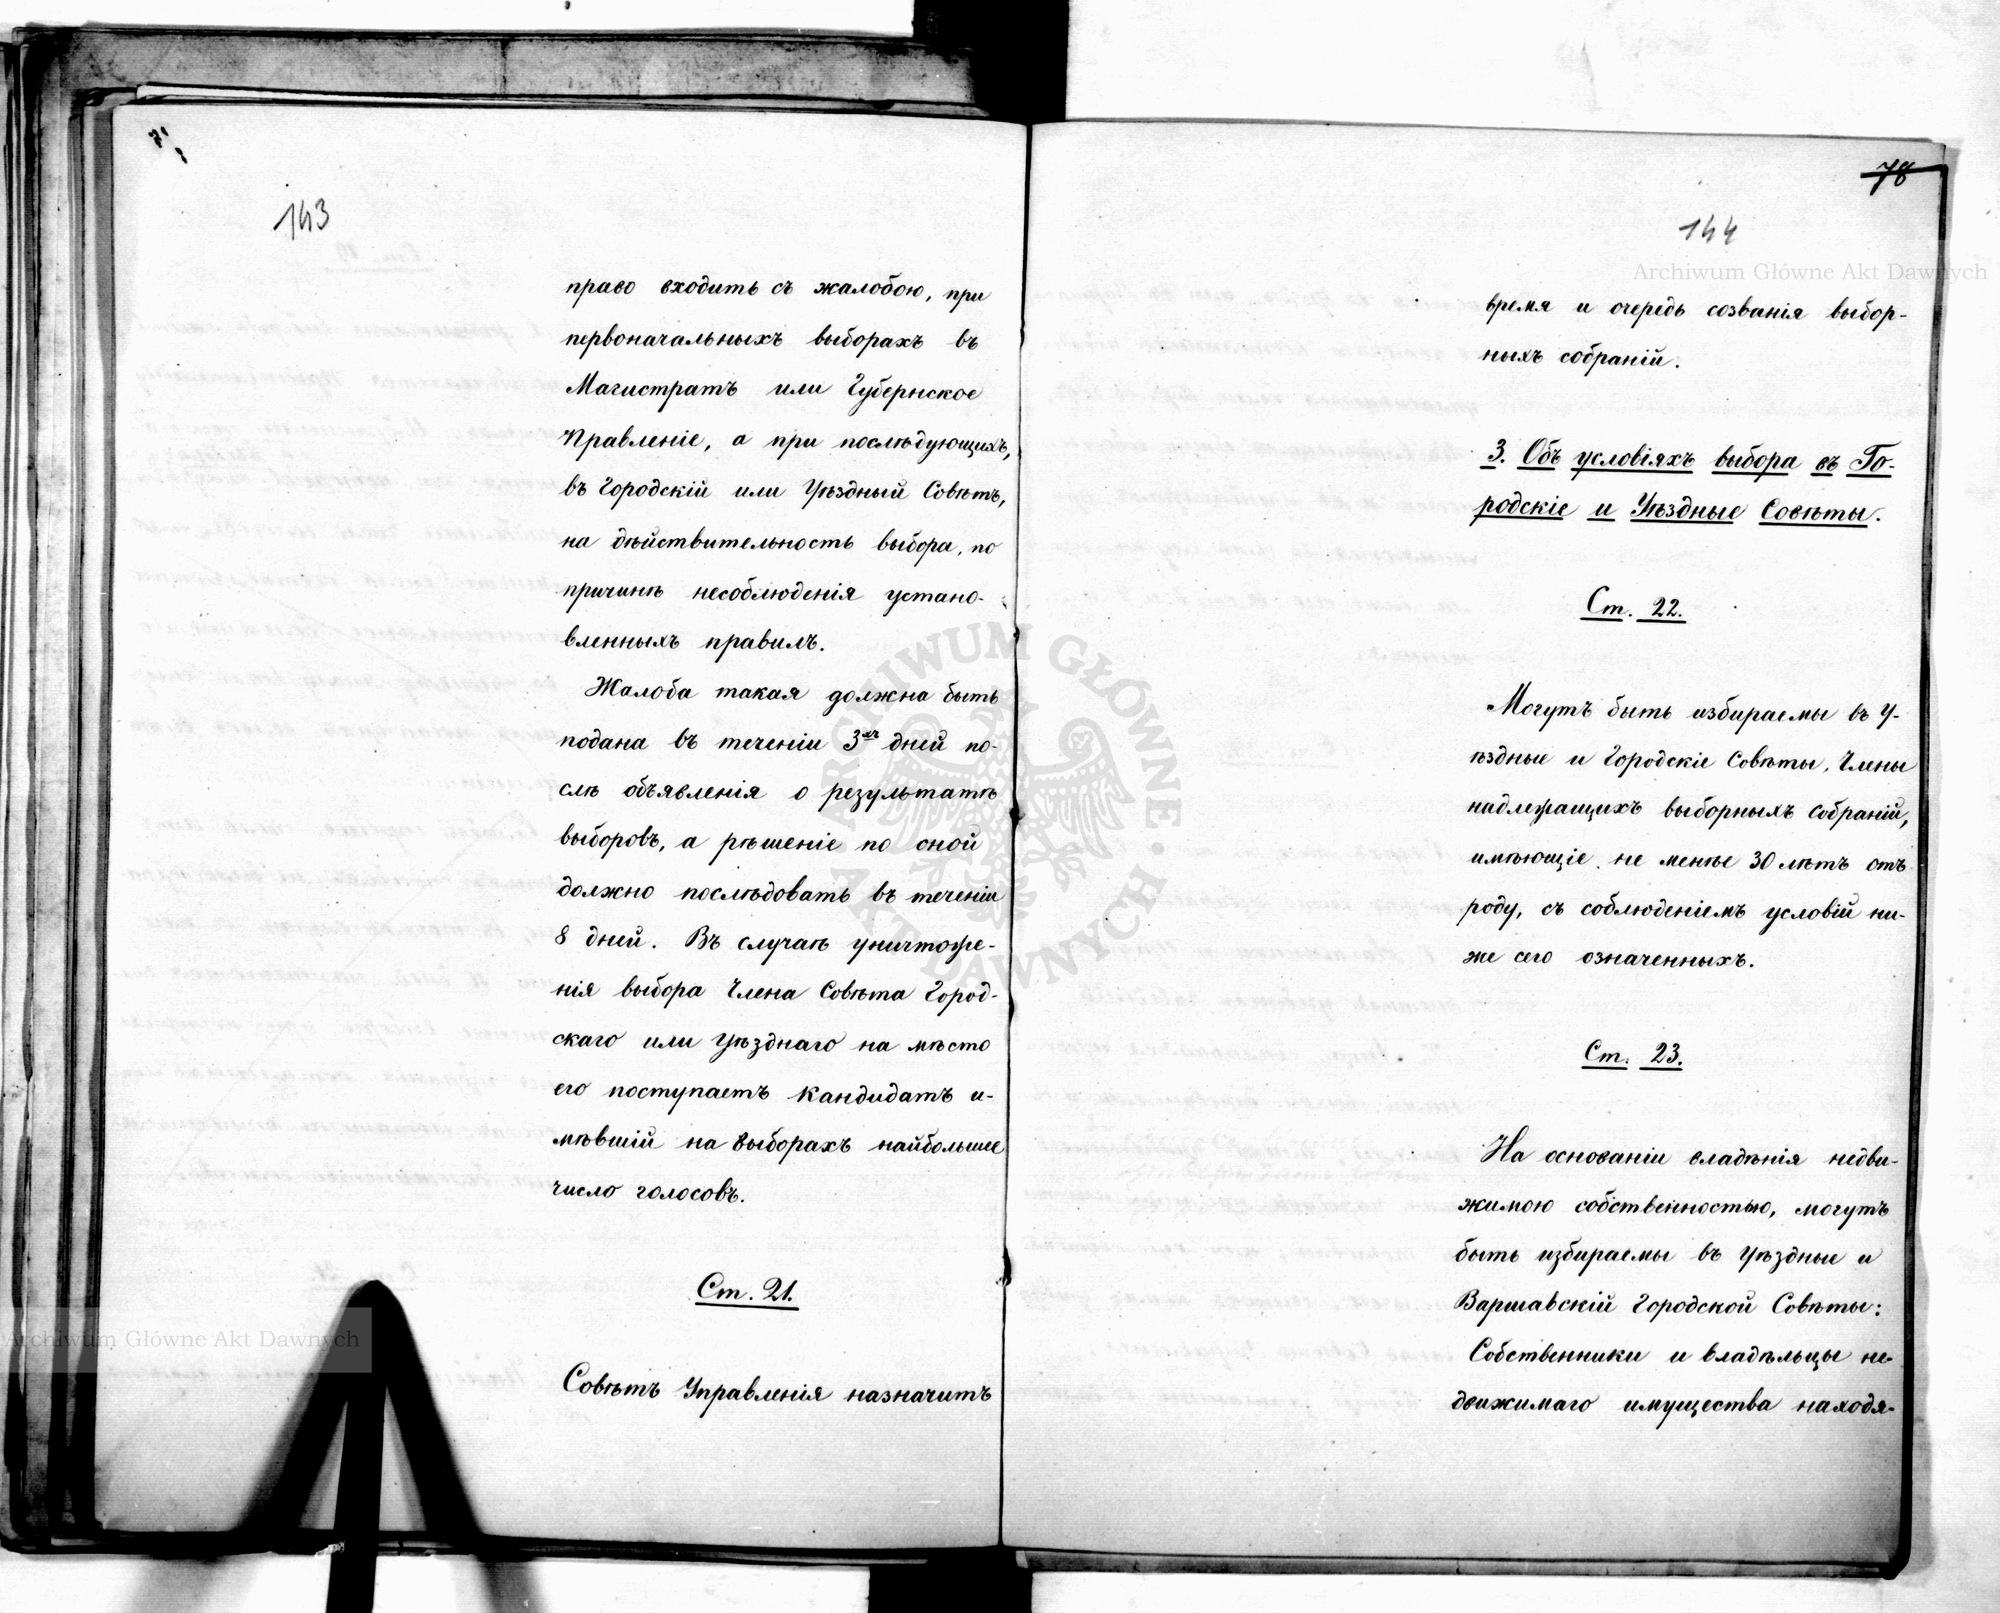 143
право входить съ жалобою, при
первоначальныхъ выборахъ въ
Магистратъ или Губернское
Правленіе, а при послѣдующихъ,
въ Городскій или Уѣздный Совѣтъ,
на дѣйствительность выбора, по
причинѣ несоблюденія устано-
вленныхъ правилъ.
Жалоба такая должна быть
подана въ теченіи 3хъ дней по-
слѣ объявленія о результатѣ
выборовъ, а рѣшеніе по оной
должно послѣдовать въ теченіи
8 дней. Въ случаѣ уничтоже-
нія выбора Члена Совѣта Город-
скаго или Уѣзднаго на мѣсто
его поступаетъ Кандидатъ и-
мѣвшій на выборахъ наибольшее
число голосовъ.
Ст. 21.
Совѣтъ Управленія назначитъ
78
144
Archiwum Główne Akt Dawnych
время и очередь созванія выбор-
ныхъ собраній.
3. Объ условіяхъ выбора въ Го-
родскіе и Уѣздные Совѣты.
Ст. 22.
Могутъ быть избираемы въ У-
ѣздные и Городскіе Совѣты, Члены
надлежащихъ выборныхъ собраній,
имѣющіе не менѣе 30 лѣтъ отъ
роду, съ соблюденіемъ условій ни-
же сего означенныхъ.
Ст. 23.
На основаніи владѣнія недви-
жимою собственностью, могутъ
быть избираемы въ Уѣздные и
Варшавскій Городской Совѣты:
Собственники и владѣльцы не-
движимаго имущества находя-
ARCHIWUM GŁÓWNE · AKT DAWNYCH ·
Archiwum Główne Akt Dawnych